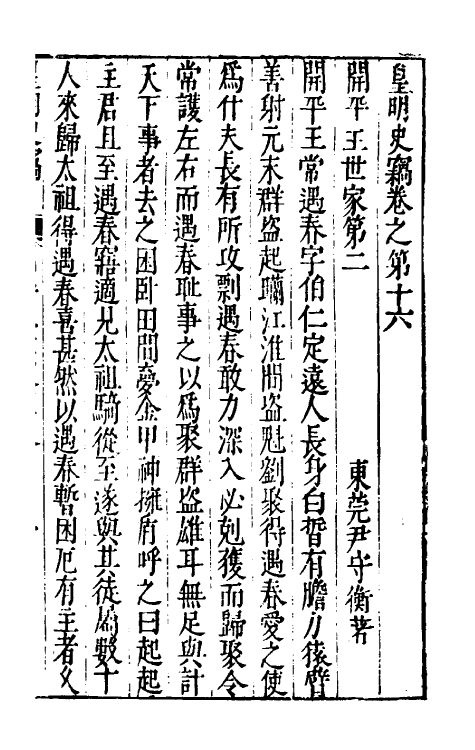 皇明史竊卷之第十六
開平王世家第二
東莞尹守衡著
開平王常遇春字伯仁定遠人長身白晳有膽力猿臂
善射元末群盗起瓓江淮間盗魁劉聚得遇春愛之使
爲什夫長有所攻剽遇春敢力深入必剋獲而歸聚令
常護左右而遇春耻事之以爲聚群盗雄耳無足與計
天下事者去之困卧田間夢金甲神擁盾呼之曰起起
主君且至遇春寤適見太祖騎從至遂與其徒數十
人來歸太祖得遇春喜甚然以遇春暫困厄有主者攵